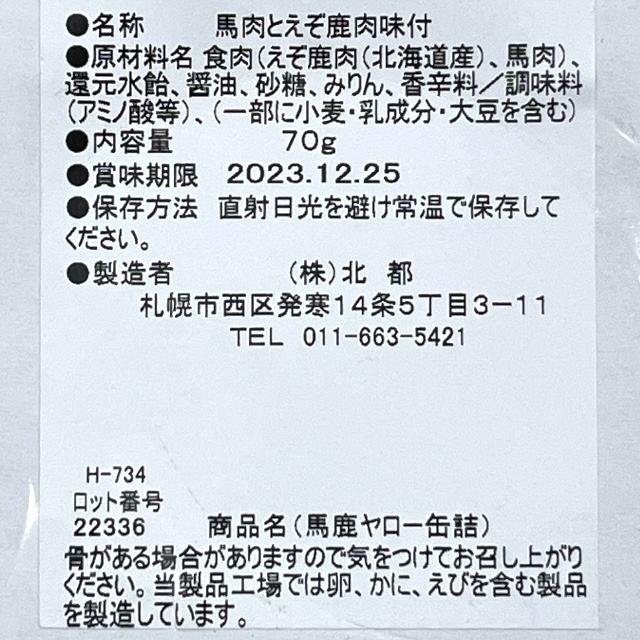 ●名称 馬肉とえぞ鹿肉味付
●原材料名 食肉(えぞ鹿肉(北海道産)、馬肉)、
還元水飴、醤油、砂糖、みりん、香辛料／調味料
(アミノ酸等)、(一部に小麦・乳成分・大豆を含む)
●内容量 70g
●賞味期限 2023.12.25
●保存方法 直射日光を避け常温で保存して
ください。
●製造者 (株)北 都
札幌市西区発寒14条5丁目3-11
TEL 011-663-5421
H-734
ロット番号
22336 商品名(馬鹿ヤロー缶詰)
骨がある場合がありますので気をつけてお召し上がり
ください。当製品工場では卵、かに、えびを含む製品
を製造しています。